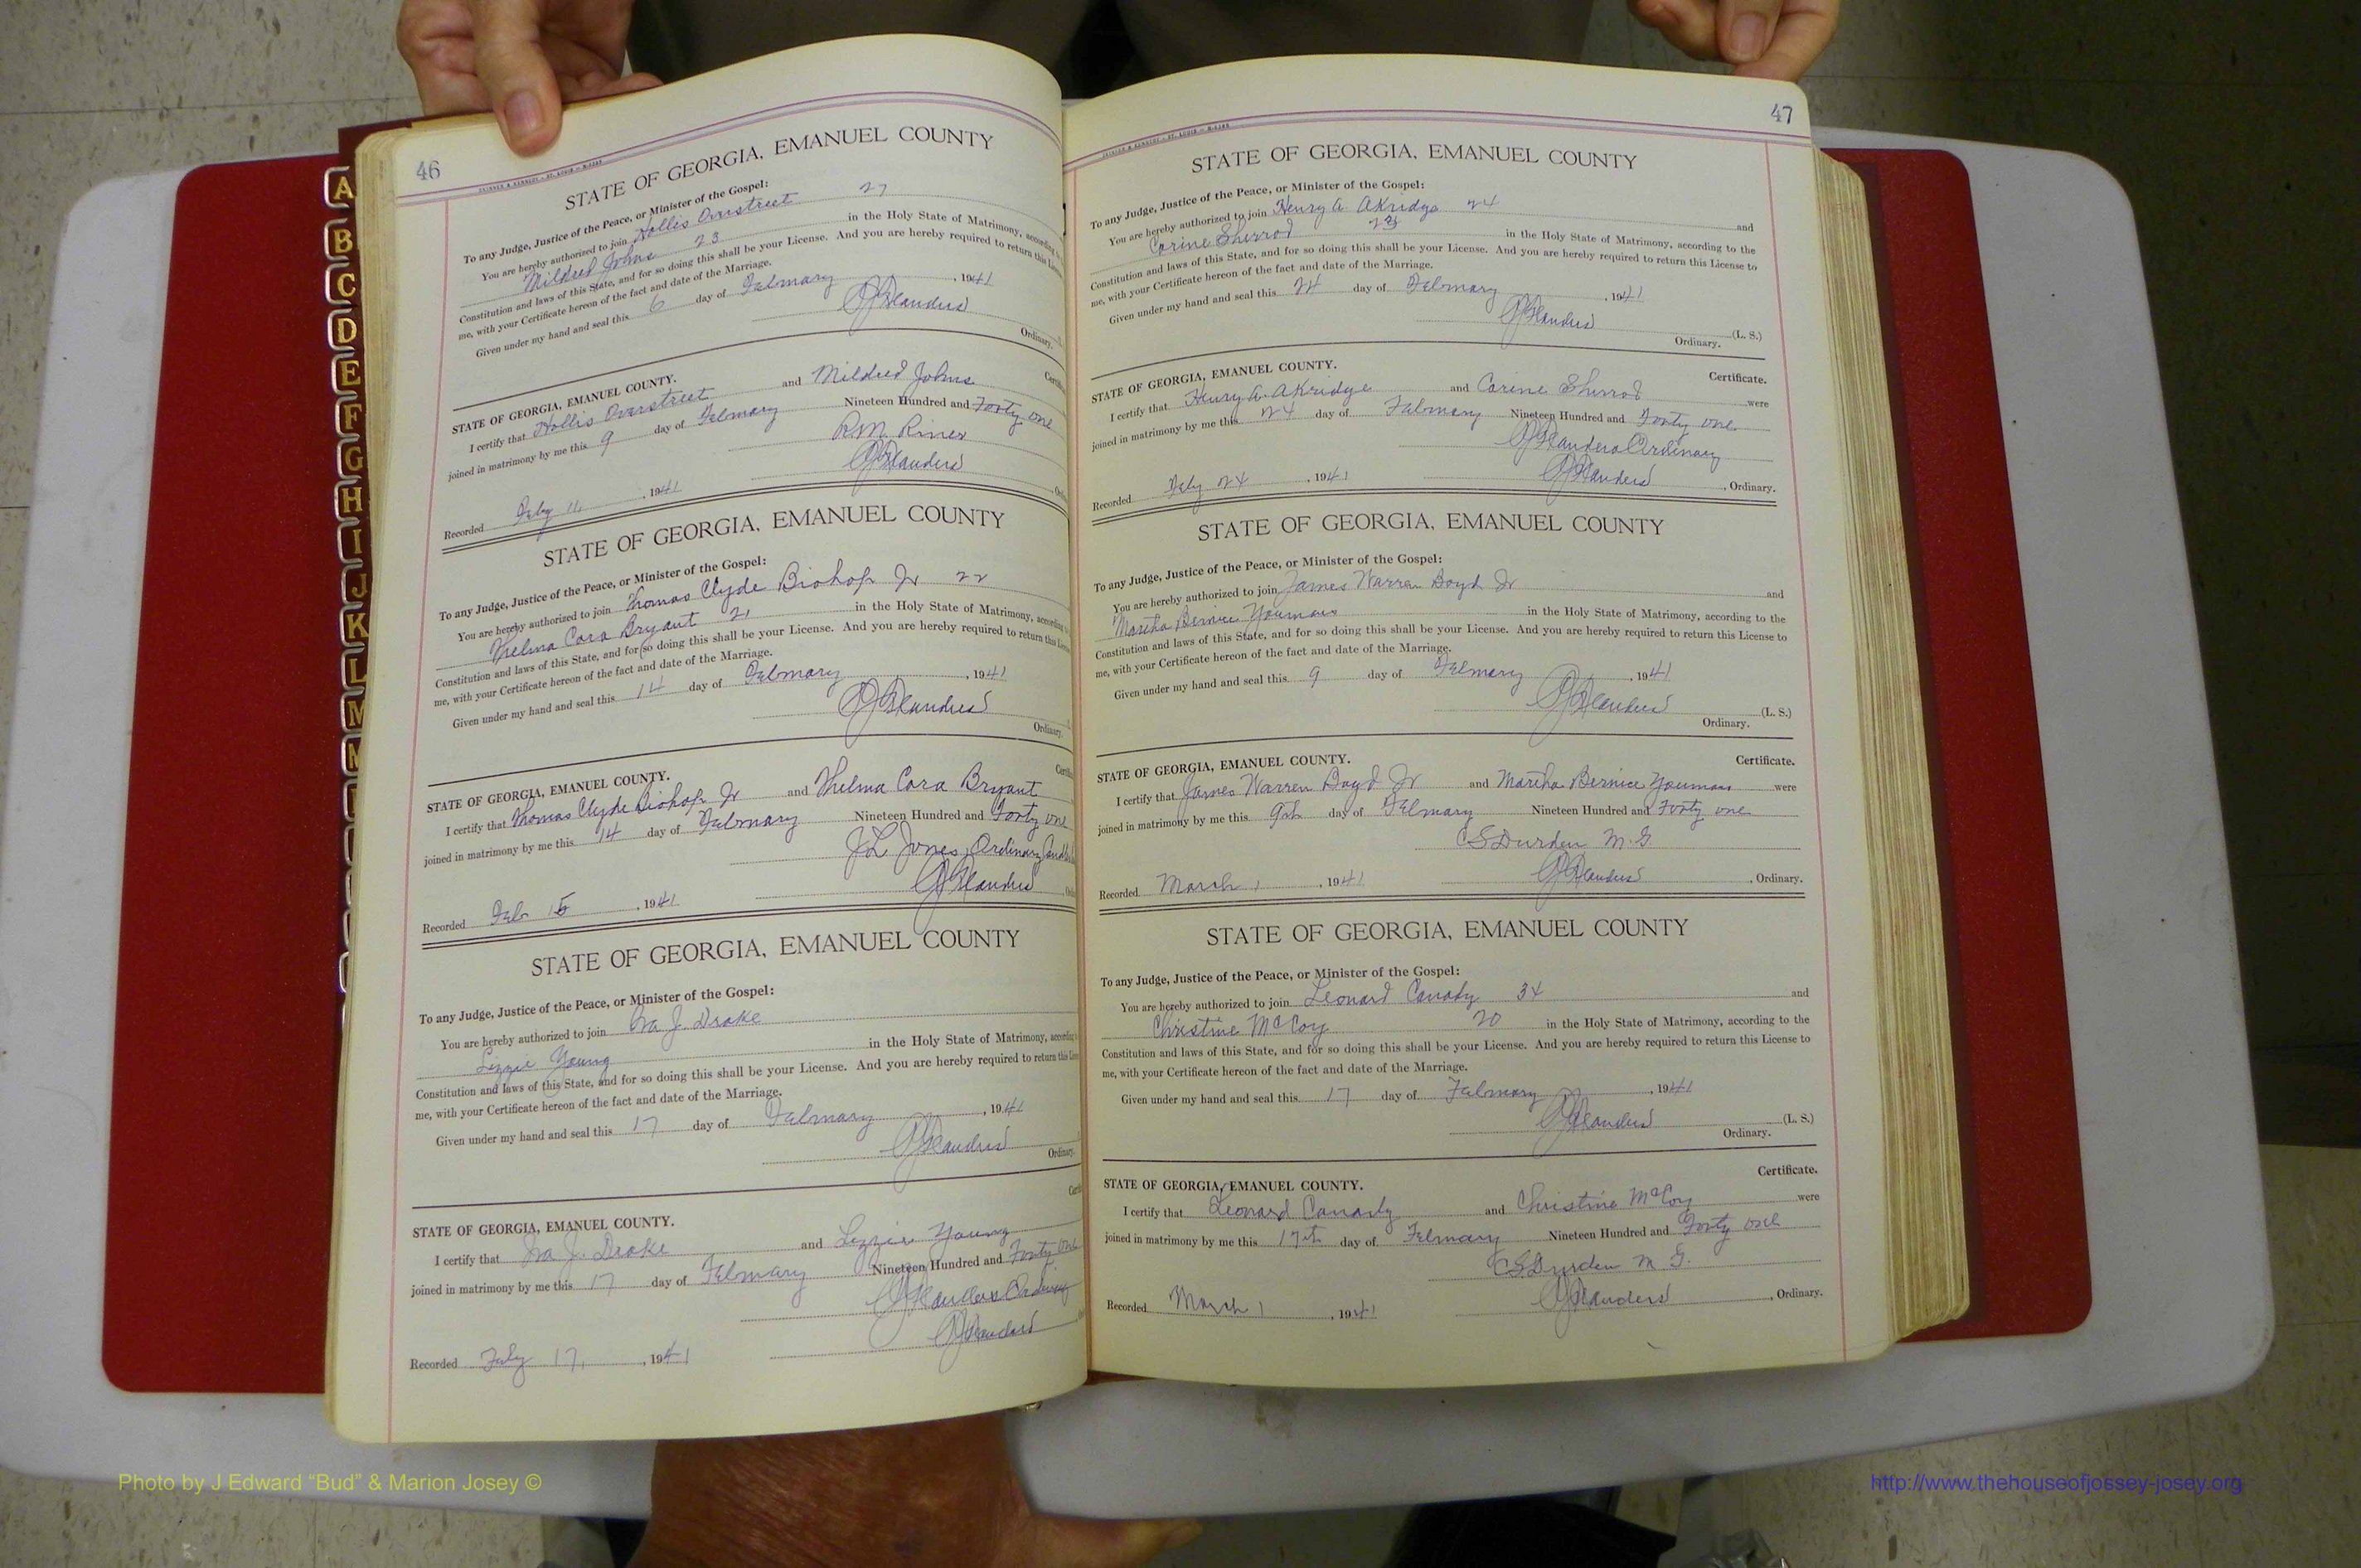 46
STATE OF GEORGIA, EMANUEL COUNTY
To any Judge, Justice of the Peace, or Minister of the Gospel:
You are hereby authorized to join Hollis Overstreet 27
Mildred Johns 23 in the Holy State of Matrimony, according
Constitution and laws of this State, and for so doing this shall be your License. And you are hereby required to return this
me, with your Certificate hereon of the fact and date of the Marriage.
Given under my hand and seal this 6 day of February, 1941
Flanders
Ordinary.
STATE OF GEORGIA, EMANUEL COUNTY.
I certify that Hollis Overstreet and Mildred Johns
joined in matrimony by me this 9 day of February Nineteen Hundred and Forty one
R M Riner
Flanders
Recorded Feby 11, 1941
STATE OF GEORGIA, EMANUEL COUNTY
To any Judge, Justice of the Peace, or Minister of the Gospel:
You are hereby authorized to join Thomas Clyde Bishop Jr 22
Thelma Cora Bryant 21 in the Holy State of Matrimony, according
Constitution and laws of this State, and for so doing this shall be your License. And you are hereby required to return this
me, with your Certificate hereon of the fact and date of the Marriage.
Given under my hand and seal this 14 day of February, 1941
Flanders
Ordinary.
STATE OF GEORGIA, EMANUEL COUNTY.
I certify that Thomas Clyde Bishop Jr and Thelma Cora Bryant
joined in matrimony by me this 14 day of February Nineteen Hundred and Forty one
J L Jones, Ordinary
Flanders
Recorded Feb 15, 1941
STATE OF GEORGIA, EMANUEL COUNTY
To any Judge, Justice of the Peace, or Minister of the Gospel:
You are hereby authorized to join Ira J. Drake
Lizzie Young in the Holy State of Matrimony, according
Constitution and laws of this State, and for so doing this shall be your License. And you are hereby required to return this
me, with your Certificate hereon of the fact and date of the Marriage.
Given under my hand and seal this 17 day of February, 1941
Flanders
Ordinary.
STATE OF GEORGIA, EMANUEL COUNTY.
I certify that Ira J. Drake and Lizzie Young
joined in matrimony by me this 17 day of February Nineteen Hundred and Forty one
Flanders Ordinary
Flanders
Recorded Feby 17, 1941
47
STATE OF GEORGIA, EMANUEL COUNTY
To any Judge, Justice of the Peace, or Minister of the Gospel:
You are hereby authorized to join Henry A. Akridge 24 and
Corine Sherrod in the Holy State of Matrimony, according to the
Constitution and laws of this State, and for so doing this shall be your License. And you are hereby required to return this License to
me, with your Certificate hereon of the fact and date of the Marriage.
Given under my hand and seal this 24 day of February, 1941
Flanders (L. S.)
Ordinary.
Certificate.
STATE OF GEORGIA, EMANUEL COUNTY.
I certify that Henry A. Akridge and Corine Sherrod were
joined in matrimony by me this 24 day of February Nineteen Hundred and Forty one
Flanders Ordinary
Flanders, Ordinary.
Recorded Feby 24, 1941
STATE OF GEORGIA, EMANUEL COUNTY
To any Judge, Justice of the Peace, or Minister of the Gospel:
You are hereby authorized to join James Warren Boyd Jr and
Martha Bernice Youmans in the Holy State of Matrimony, according to the
Constitution and laws of this State, and for so doing this shall be your License. And you are hereby required to return this License to
me, with your Certificate hereon of the fact and date of the Marriage.
Given under my hand and seal this 9 day of February, 1941
Flanders (L. S.)
Ordinary.
Certificate.
STATE OF GEORGIA, EMANUEL COUNTY.
I certify that James Warren Boyd Jr and Martha Bernice Youmans were
joined in matrimony by me this 9th day of February Nineteen Hundred and Forty one
C S Durden M. G.
Flanders, Ordinary.
Recorded March 1, 1941
STATE OF GEORGIA, EMANUEL COUNTY
To any Judge, Justice of the Peace, or Minister of the Gospel:
You are hereby authorized to join Leonard Canady 34 and
Christine McCoy 20 in the Holy State of Matrimony, according to the
Constitution and laws of this State, and for so doing this shall be your License. And you are hereby required to return this License to
me, with your Certificate hereon of the fact and date of the Marriage.
Given under my hand and seal this 17 day of February, 1941
Flanders (L. S.)
Ordinary.
Certificate.
STATE OF GEORGIA, EMANUEL COUNTY.
I certify that Leonard Canady and Christine McCoy were
joined in matrimony by me this 17th day of February Nineteen Hundred and Forty one
C S Durden M G.
Flanders, Ordinary.
Recorded March 1, 1941
A
B
C
D
E
F
G
H
I
J
K
L
M
Photo by J Edward “Bud” & Marion Josey ©
http://www.thehouseofjossey-josey.org